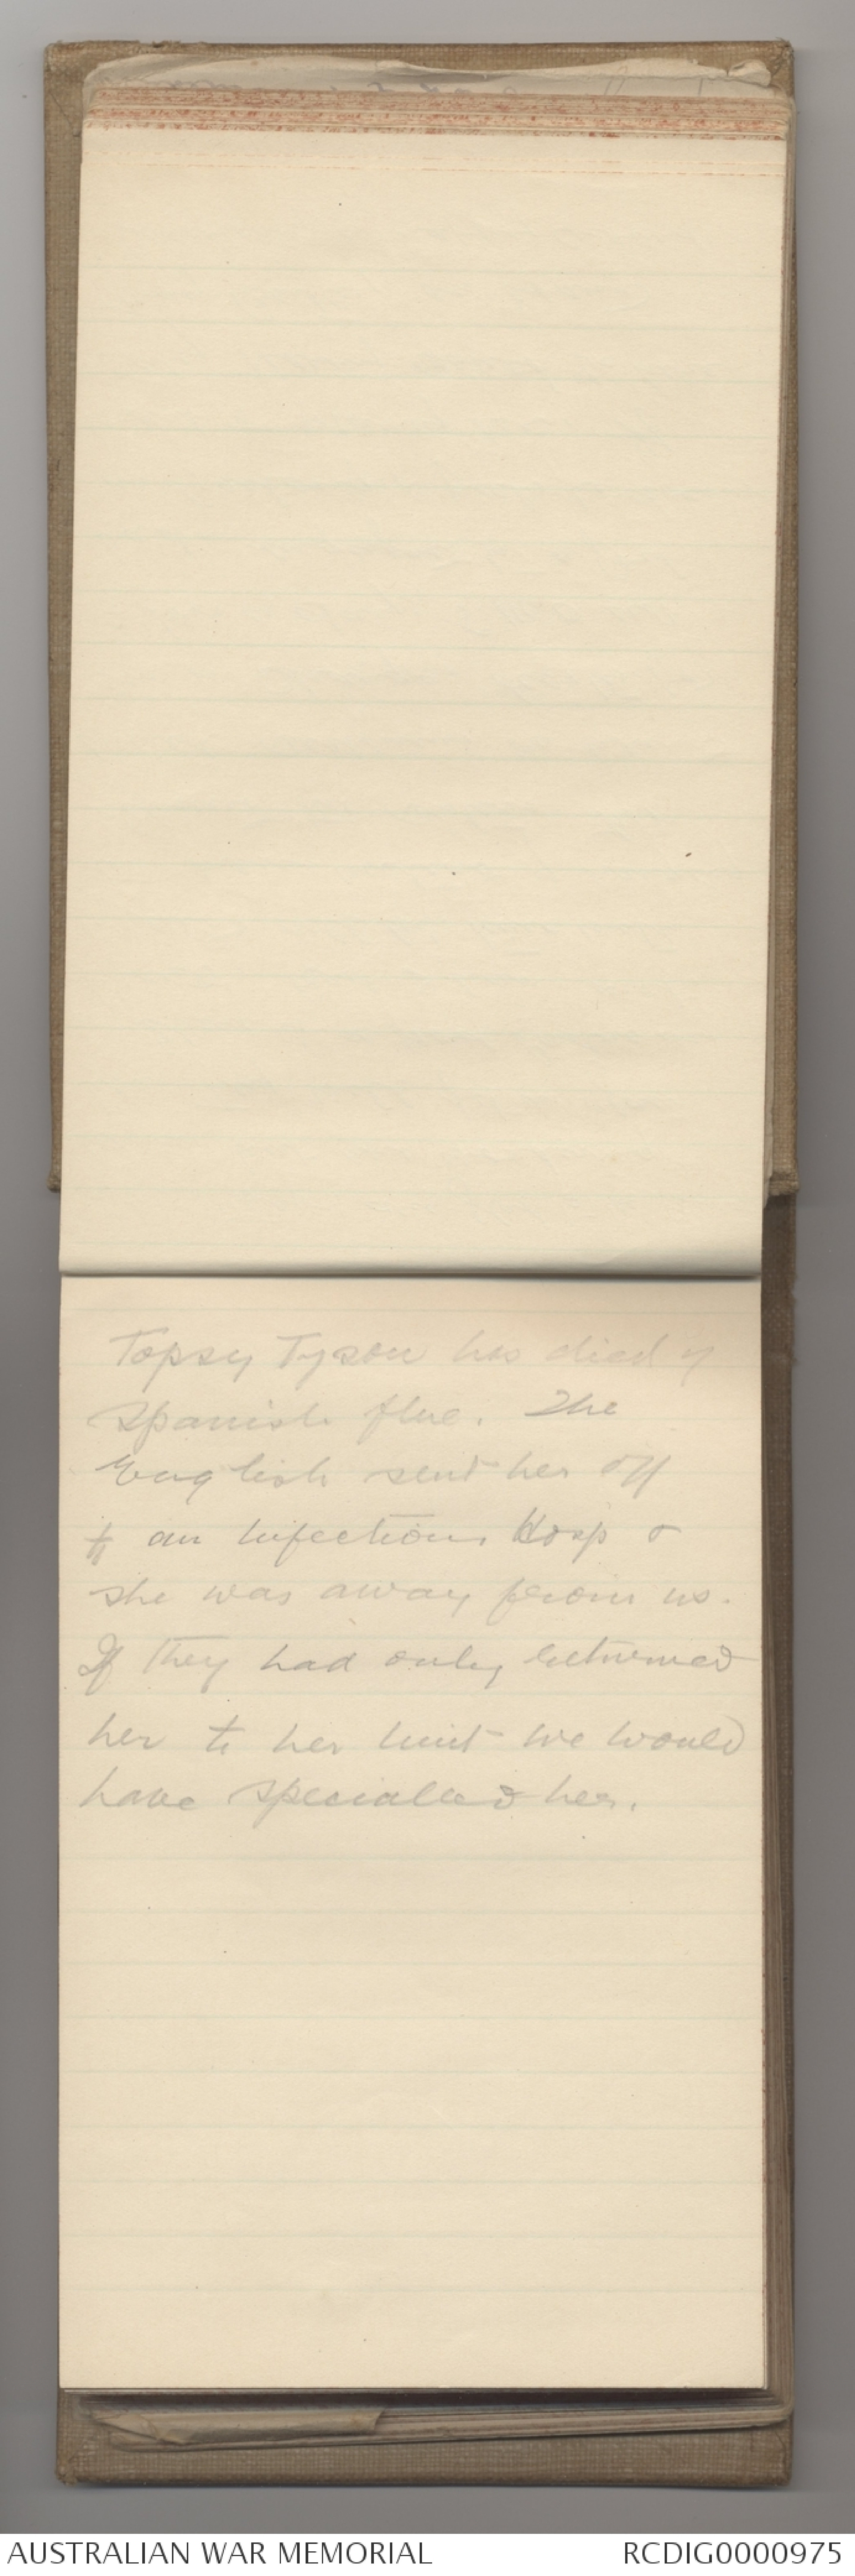 Topsy Tyson has died of
Spanish flue. The
English sent her off
to an infectious Hosp &
she was away from us.
If they had only returned
her to her unit we would
have specialled her.
AUSTRALIAN WAR MEMORIAL
RCDIG0000975